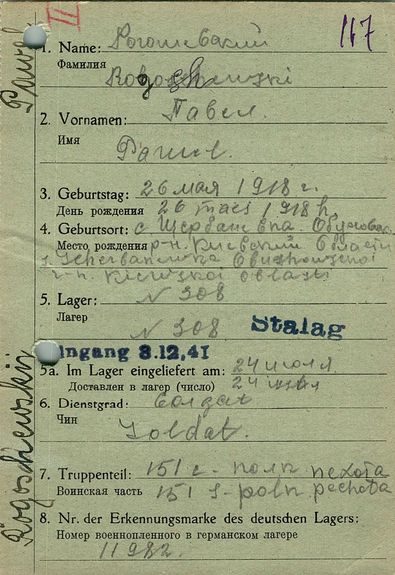 II
117
1. Name: Рогошевский
Фамилия
Rogoschewski
2. Vornamen: Павел.
Имя
Pawel.
3. Geburtstag: 26 мая 1918 г.
День рождения 26 maes 1918 h.
4. Geburtsort: с. Щербановка Обуховск.
Место рождения р-н. Киевский Области
s. Scherbanewka Obuchowskoi
r-n. Kiewskoi oblasti
5. Lager: N 308
Лагерь
N 308
Stalag
Eingang 8.12.41
5a. Im Lager eingeliefert am: 24 июля
Доставлен в лагерь (число) 24
6. Dienstgrad: Солдат
Чин
Soldat.
7. Truppenteil: 151 с - полк пехота
Воинская часть 151 s - polk pechota
8. Nr. der Erkennungsmarke des deutschen Lagers:
Номер военнопленного в германском лагере
11982.
Pawel
Rogoschewskij